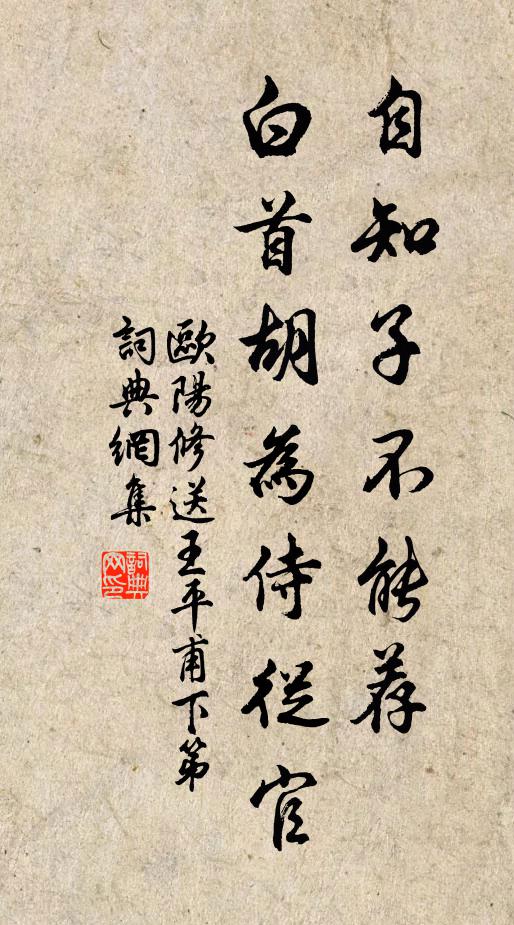 自知子不能荐
白首胡為侍從官
歐陽修送王平甫下第
詞典網集
詞典网印